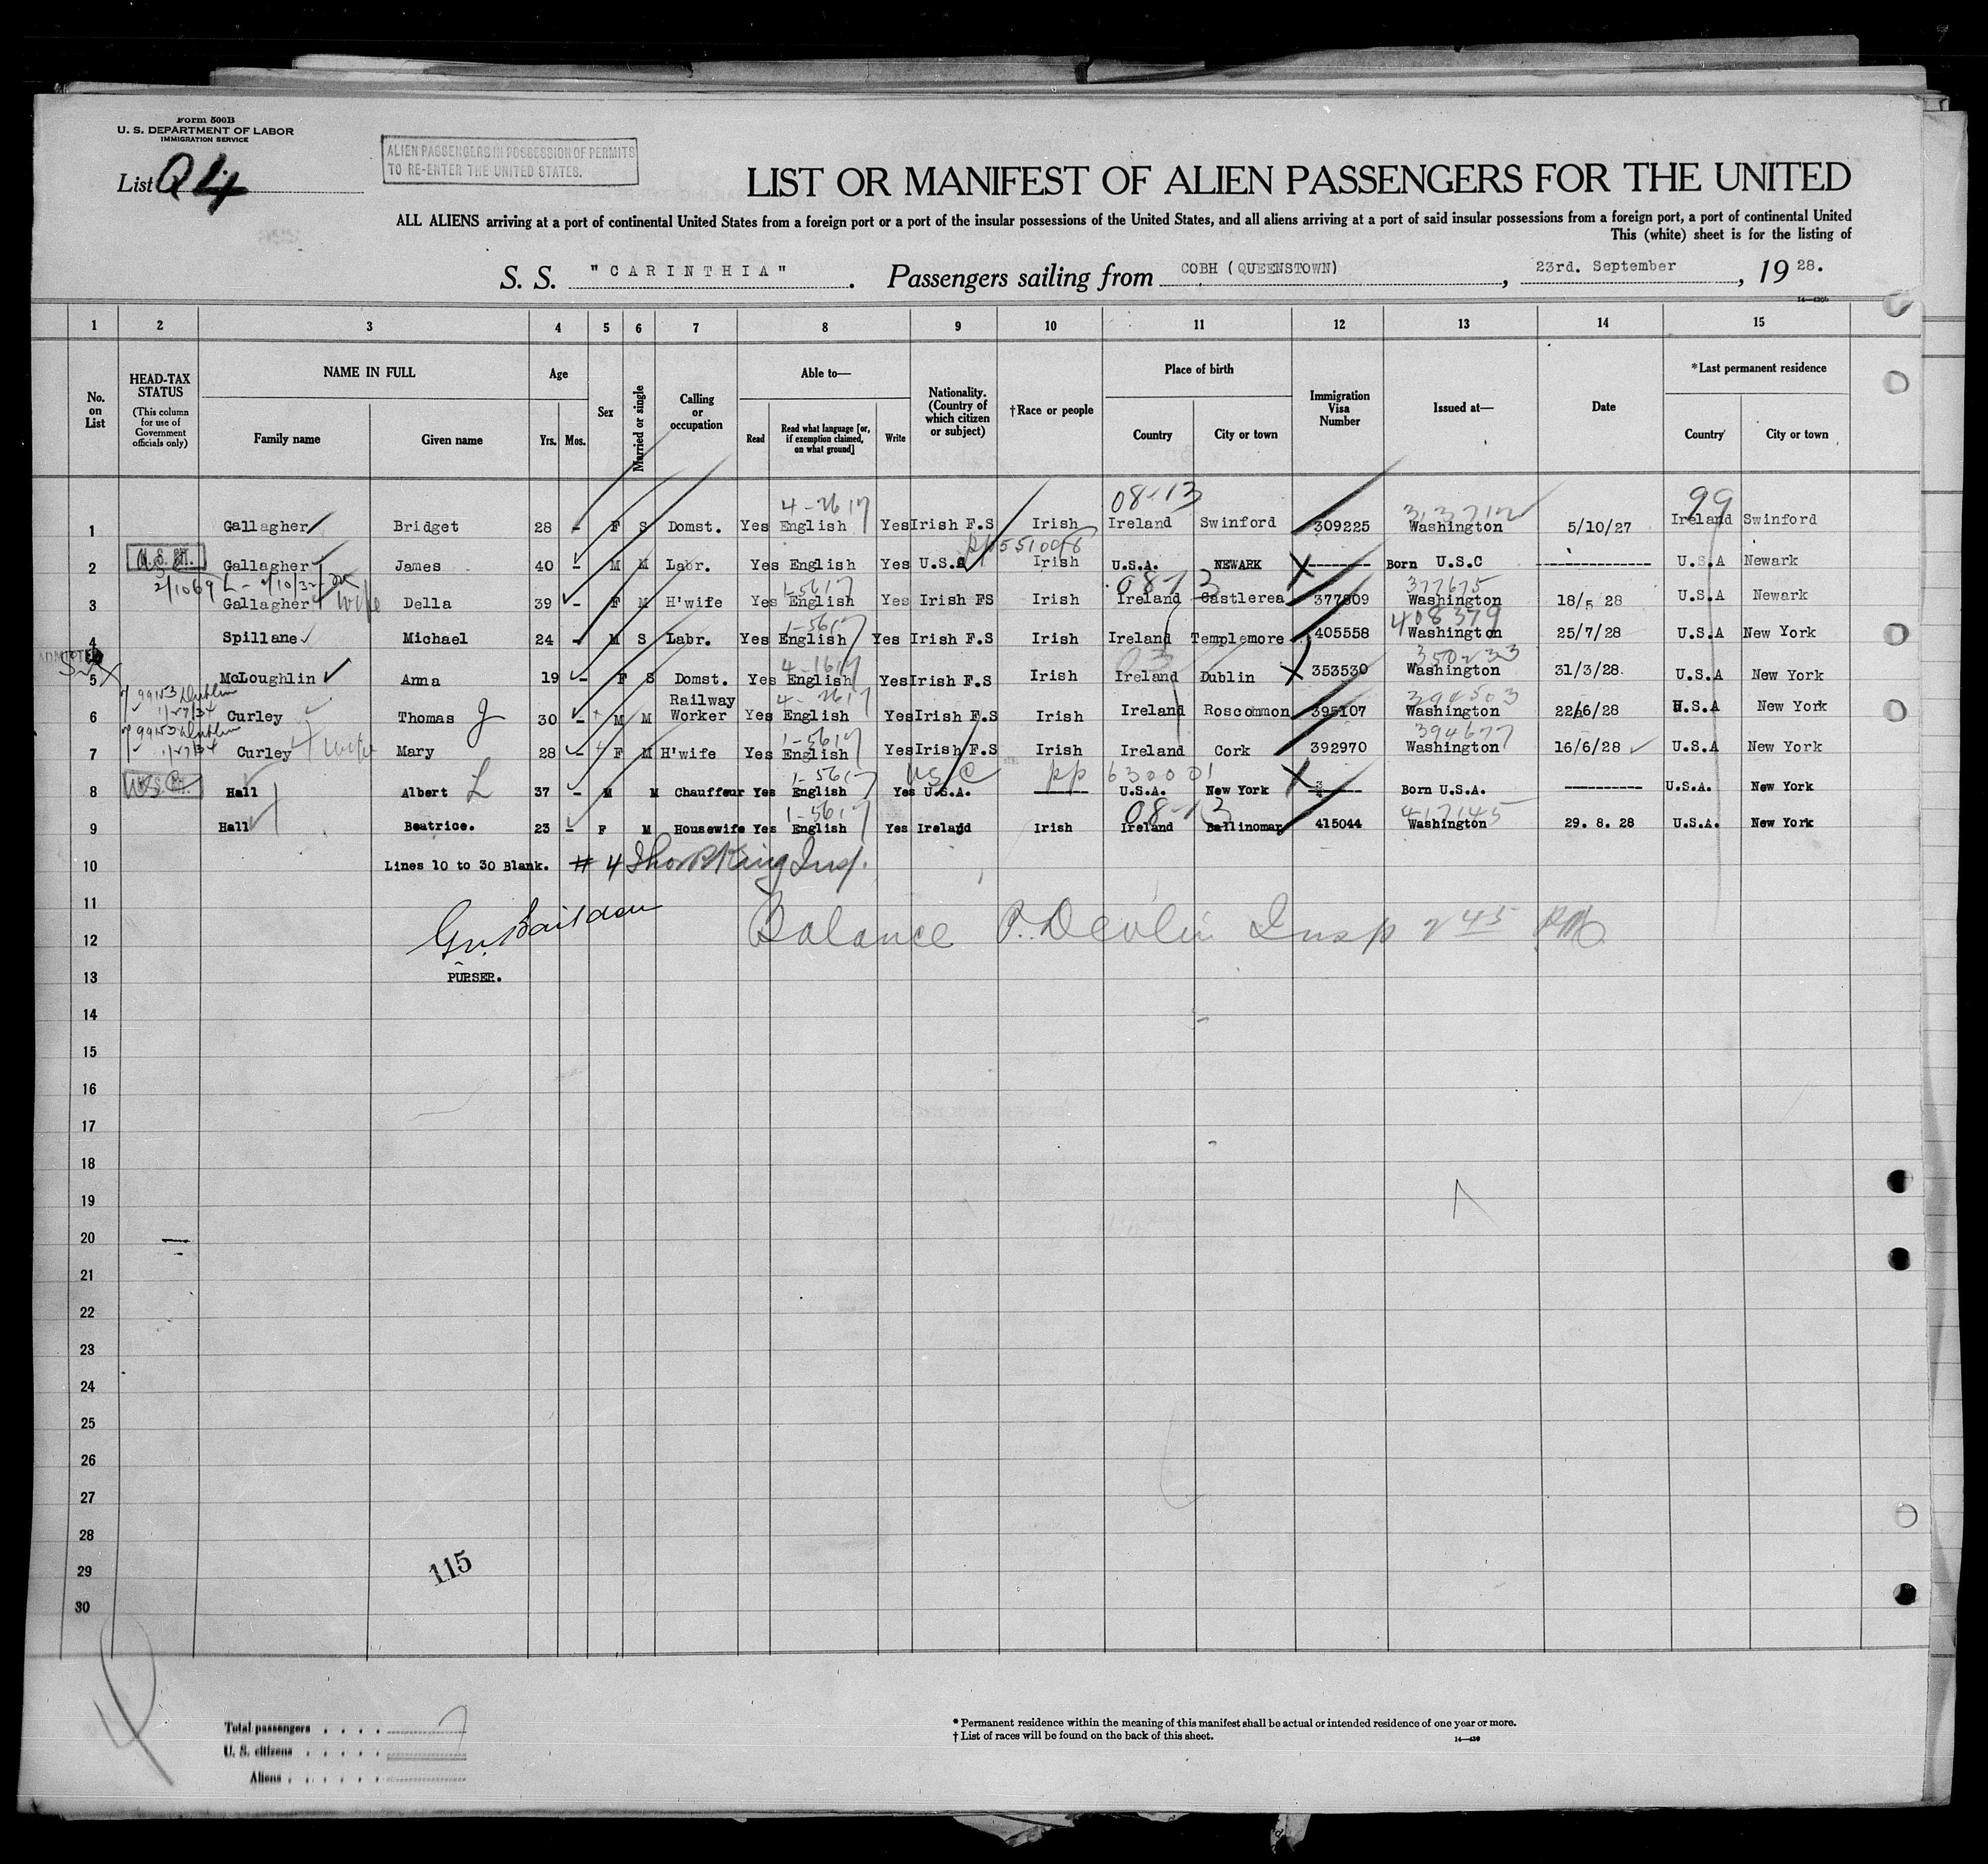 Form 500B
U. S. DEPARTMENT OF LABOR
IMMIGRATION SERVICE
List Q4
ALIEN PASSENGERS IN POSSESSION OF PERMITS
TO RE-ENTER THE UNITED STATES.
LIST OR MANIFEST OF ALIEN PASSENGERS FOR THE UNITED
ALL ALIENS arriving at a port of continental United States from a foreign port or a port of the insular possessions of the United States, and all aliens arriving at a port of said insular possessions from a foreign port, a port of continental United
This (white) sheet is for the listing of
S. S. "CARINTHIA". Passengers sailing from COBH (QUEENSTOWN), 23rd. September, 19 28.
14—430b
1 2 3 4 5 6 7 8 9 10 11 12 13 14 15
No. on List
HEAD-TAX STATUS (This column for use of Government officials only)
NAME IN FULL
Family name Given name
Age
Yrs. Mos.
Sex
Married or single
Calling or occupation
Able to—
Read Read what language [or, if exemption claimed, on what ground] Write
Nationality. (Country of which citizen or subject)
†Race or people
Place of birth
Country City or town
Immigration Visa Number
Issued at—
Date
*Last permanent residence
Country City or town
4-2617 08-13 313712 99
1 Gallagher Bridget 28 - F S Domst. Yes English Yes Irish F.S Irish Ireland Swinford 309225 Washington 5/10/27 Ireland Swinford
pp 551008
2 Gallagher James 40 - M M Labr. Yes English Yes U.S.A Irish U.S.A. NEWARK -------- Born U.S.C -------------- U.S.A Newark
2/1069 L - 2/10/32 1-5617 08-13 377675
3 Gallagher wife Della 39 - F M H'wife Yes English Yes Irish FS Irish Ireland Castlerea 377809 Washington 18/5 28 U.S.A Newark
1-5617 408379
4 Spillane Michael 24 - M S Labr. Yes English Yes Irish F.S Irish Ireland Templemore 405558 Washington 25/7/28 U.S.A New York
ADMITTED
4-1617 03 350233
5 McLoughlin Anna 19 - F S Domst. Yes English Yes Irish F.S Irish Ireland Dublin 353530 Washington 31/3/28. U.S.A New York
4-2617 394503
6 Curley Thomas 30 - M M Railway Worker Yes English Yes Irish F.S Irish Ireland Roscommon 395107 Washington 22/6/28 U.S.A New York
1-5617 394677
7 Curley wife Mary 28 - F M H'wife Yes English Yes Irish F.S Irish Ireland Cork 392970 Washington 16/6/28 U.S.A New York
1-5617 USC pp 630001
8 Hall Albert L 37 - M M Chauffeur Yes English Yes U.S.A. ------ U.S.A. New York ------ Born U.S.A. ---------- U.S.A. New York
1-5617 08-13 417145
9 Hall Beatrice. 23 - F M Housewife Yes English Yes Ireland Irish Ireland Ballinomar 415044 Washington 29. 8. 28 U.S.A. New York
10 Lines 10 to 30 Blank. # 4 Insp.
11
12 Balance P. Devlin Insp 2 45 PM
13 PURSER.
14
15
16
17
18
19
20
21
22
23
24
25
26
27
28
29
30
115
Total passengers
U. S. citizens
Aliens
* Permanent residence within the meaning of this manifest shall be actual or intended residence of one year or more.
† List of races will be found on the back of this sheet.
14—430